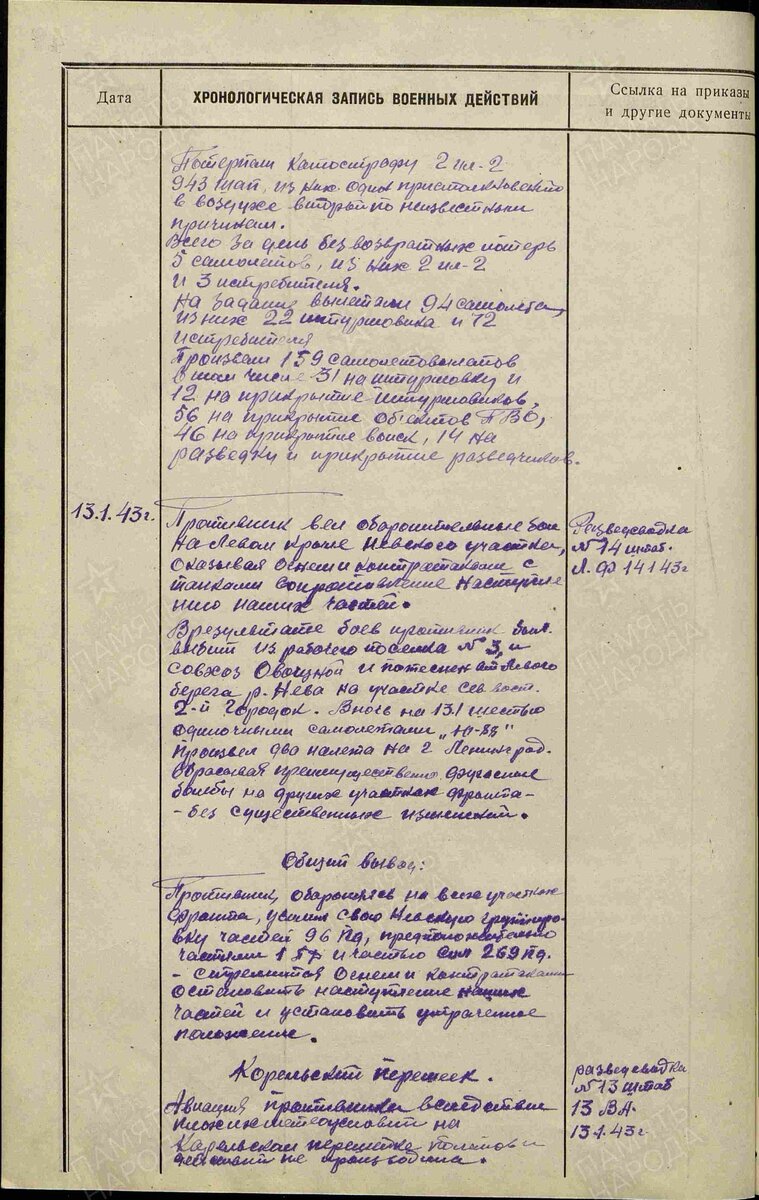 Дата
ХРОНОЛОГИЧЕСКАЯ ЗАПИСЬ ВОЕННЫХ ДЕЙСТВИЙ
Ссылка на приказы
и другие документы
Потерпели катострофу 2 ил-2
943 шап, из них один при столкновении
в воздухе второй по неизвестным
причинам.
Всего за день без возвратных потерь
5 самолетов, из них 2 ил-2
и 3 истребителя.
На задания вылетали 94 самолета,
из них 22 штурмовика и 72
истребителя
Произвели 159 самолетовылетов
в том числе 31 на штурмовку и
12 на прикрытие штурмовиков,
56 на прикрытие объектов ПВО,
46 на прикрытие войск, 14 на
разведку и прикрытие разведчиков.
13.1.43г.
Противник вел оборонительные бои
на Левом крыле Невского участка,
оказывая огнем и контратаками с
танками сопротивление наступле
нию наших частей.
В результате боев противник был
выбит из рабочего поселка №3, и
совхоз Овощной и потеснен от Левого
берега р. Нева на участке сев. вост.
2-й Городок. В ночь на 13.1 шестью
одиночными самолетами "Ю-88"
произвел два налета на г Ленинград.
Сбрасывая преимущественно фугасные
бомбы на других участках фронта -
- без существенных изменений.
Разведсводка
№14 штаб.
Л.Ф 14 1 43г
Общий вывод:
Противник, обороняясь на всех участках
фронта, усилил свою Невскую группиро-
вку частей 96 пд, предположительно
частями 1 пд и частью сил 269 пд.
- стремится Огнем и контратаками
остановить наступление наших
частей и установить утраченное
положение.
Корельский перешеек.
Авиация противника вследствие
низких метеоусловий на
Карельском перешейке полетов и
действий не производила.
разведсводка
№13 штаб
13 ВА
13.1.43г